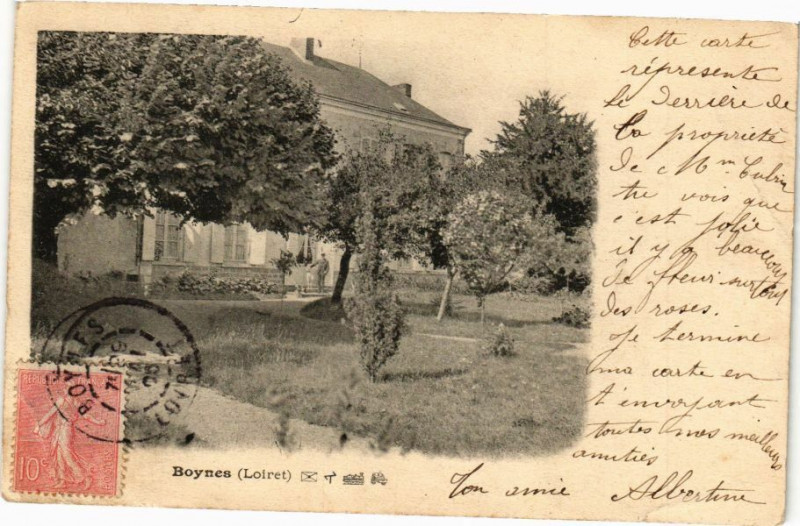 Cette carte
répresente
le derrière de
la propriété
de Mm
tu vois que
c'est jolie
il y a beaucoup
de fleur surtout
des roses.
Je termine
ma carte en
t'envoyant
toutes mes meilleurs
amitiés
Ton amie Albertine
BOYNES
LOIRET
10c
Boynes (Loiret)